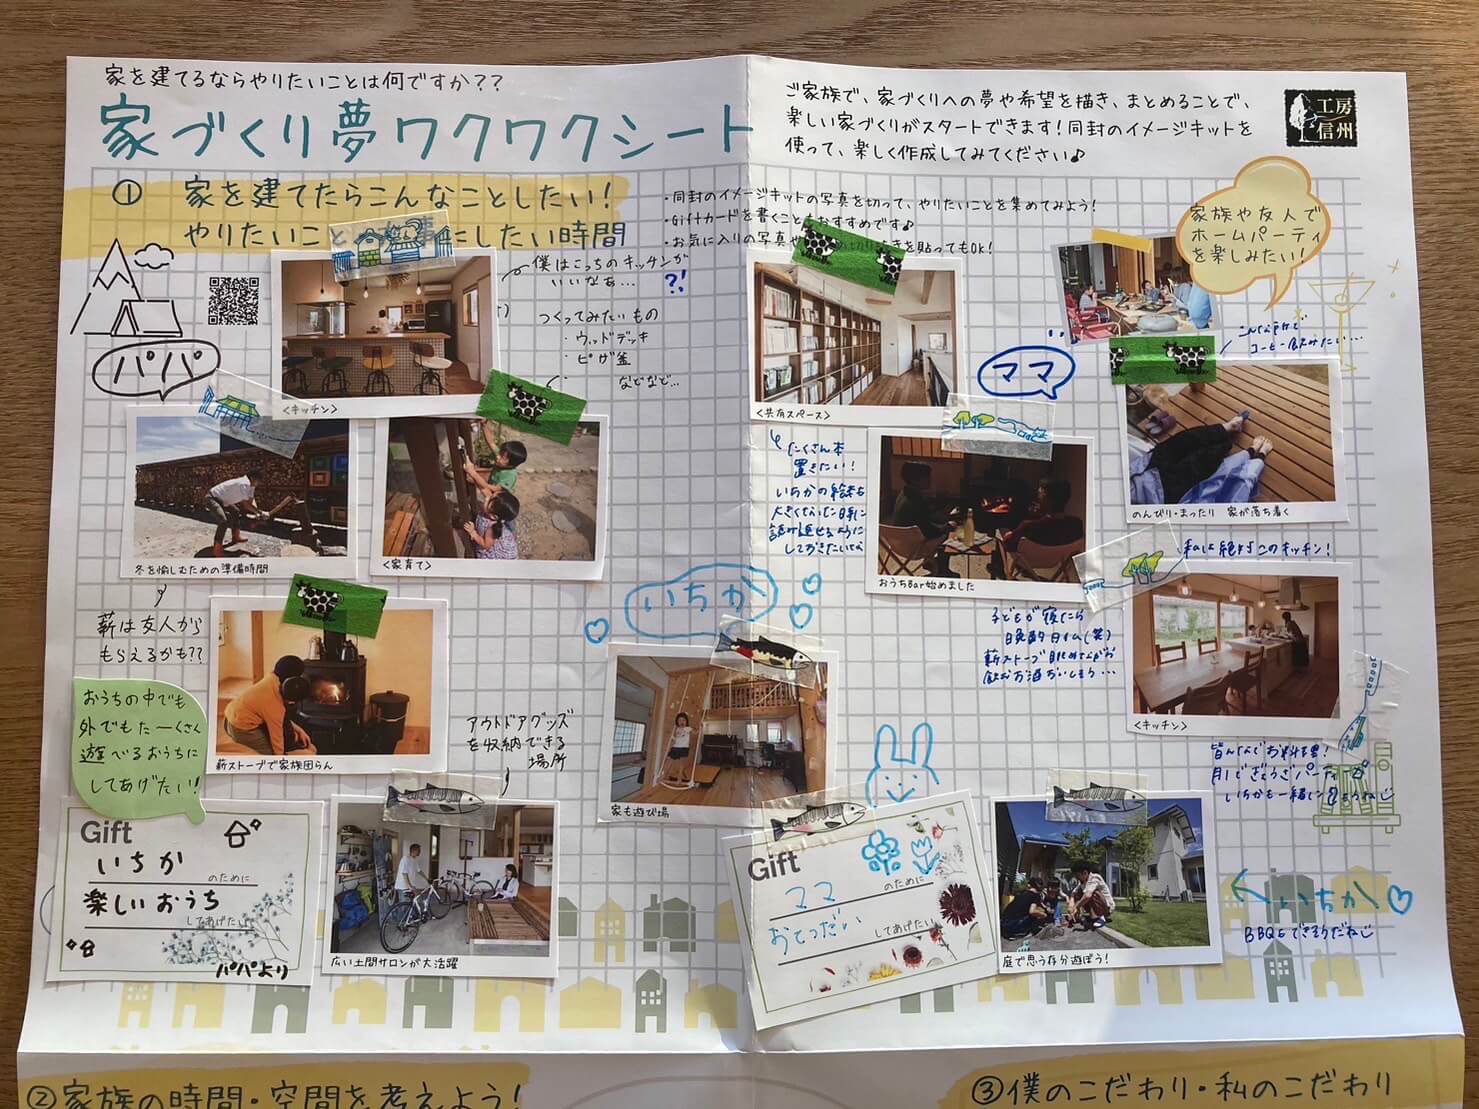 家を建てるならやりたいことは何ですか??
家づくり夢ワクワクシート
ご家族で、家づくりへの夢や希望を描き、まとめることで、
楽しい家づくりがスタートできます!同封のイメージキットを
使って、楽しく作成してみてください♪
工房
信州
① 家を建てたらこんなことしたい!
やりたいこと
にしたい時間
・同封のイメージキットの写真を切って、やりたいことを集めてみよう!
・Giftカードを書くこともおすすめです♪
・お気に入りの写真や
切り抜きを貼ってもOK!
家族や友人で
ホームパーティ
を楽しみたい!
パパ
僕はこっちのキッチンが
いいなぁ… ?!
つくってみたいもの
・ウッドデッキ
・ピザ窯
などなど…
<キッチン>
冬を愉しむための準備時間
<家育て>
薪は友人から
もらえるかも??
おうちの中でも
外でもたーくさん
遊べるおうちに
してあげたい!
薪ストーブで家族団らん
アウトドアグッズ
を収納できる
場所
広い土間サロンが大活躍
Gift
いちか
のために
楽しいおうち
してあげたい
パパより
<共有スペース>
たくさん本
置きたい!
いちかの絵本も
大きくなった時に
読み返せるように
しておきたいから
ママ
コーヒー飲みたい…
のんびり・まったり 家が落ち着く
おうちBar始めました
子どもが寝たら
晩酌タイム(笑)
薪ストーブ眺めながら
私は絶対このキッチン!
<キッチン>
皆んなでお料理!
いちかも一緒に
いちか
家も遊び場
Gift
ママ
のために
おてつだい
してあげたい
庭で思う存分遊ぼう!
いちか
BBQもできそうだね
②家族の時間・空間を考えよう!
③僕のこだわり・私のこだわり